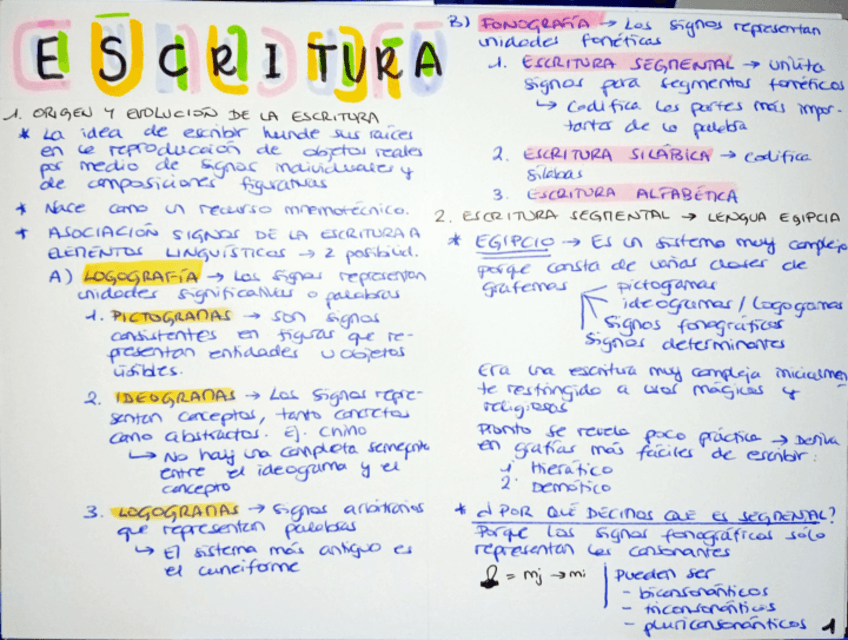 ESCRITURA
1. ORIGEN Y EVOLUCIÓN DE LA ESCRITURA
* La idea de escribir hunde sus raíces
en la reproducción de objetos reales
por medio de signos individuales y
de composiciones figurativas
* Nace como un recurso mnemotécnico.
* ASOCIACIÓN SIGNOS DE LA ESCRITURA A
ELEMENTOS LINGUÍSTICOS → 2 posibilid.
A) LOGOGRAFÍA → Los signos representan
unidades significativas o palabras
1. PICTOGRAMAS → son signos
consistentes en figuras que re-
presentan entidades u objetos
visibles.
2. IDEOGRAMAS → Los signos repre-
sentan conceptos, tanto concretos
como abstractos. Ej. Chino
↳ No hay una completa semejanza
entre el ideograma y el
concepto
3. LOGOGRAMAS → signos arbitrarios
que representan palabras
↳ El sistema más antiguo es
el cuneiforme
B) FONOGRAFÍA → Los signos representan
unidades fonéticas
1. ESCRITURA SEGMENTAL → utiliza
signos para segmentos fonéticos
↳ Codifica las partes más impor-
tantes de la palabra
2. ESCRITURA SILÁBICA → codifica
sílabas
3. ESCRITURA ALFABÉTICA
2. ESCRITURA SEGMENTAL → LENGUA EGIPCIA
* EGIPCIO → Es un sistema muy complejo
porque consta de varias clases de
grafemas
pictogramas
ideogramas / logogramas
signos fonográficos
signos determinantes
Era una escritura muy compleja inicialmen
te restringido a usos mágicos y
religiosos
Pronto se revela poco práctica → Deriva
en grafías más fáciles de escribir:
1. Hierático
2. Demótico
* ¿POR QUÉ DECIMOS QUE ES SEGMENTAL?
Porque los signos fonográficos sólo
representan las consonantes
= mj → mi
Pueden ser
- biconsonánticos
- triconsonánticos
- pluriconsonánticos
1